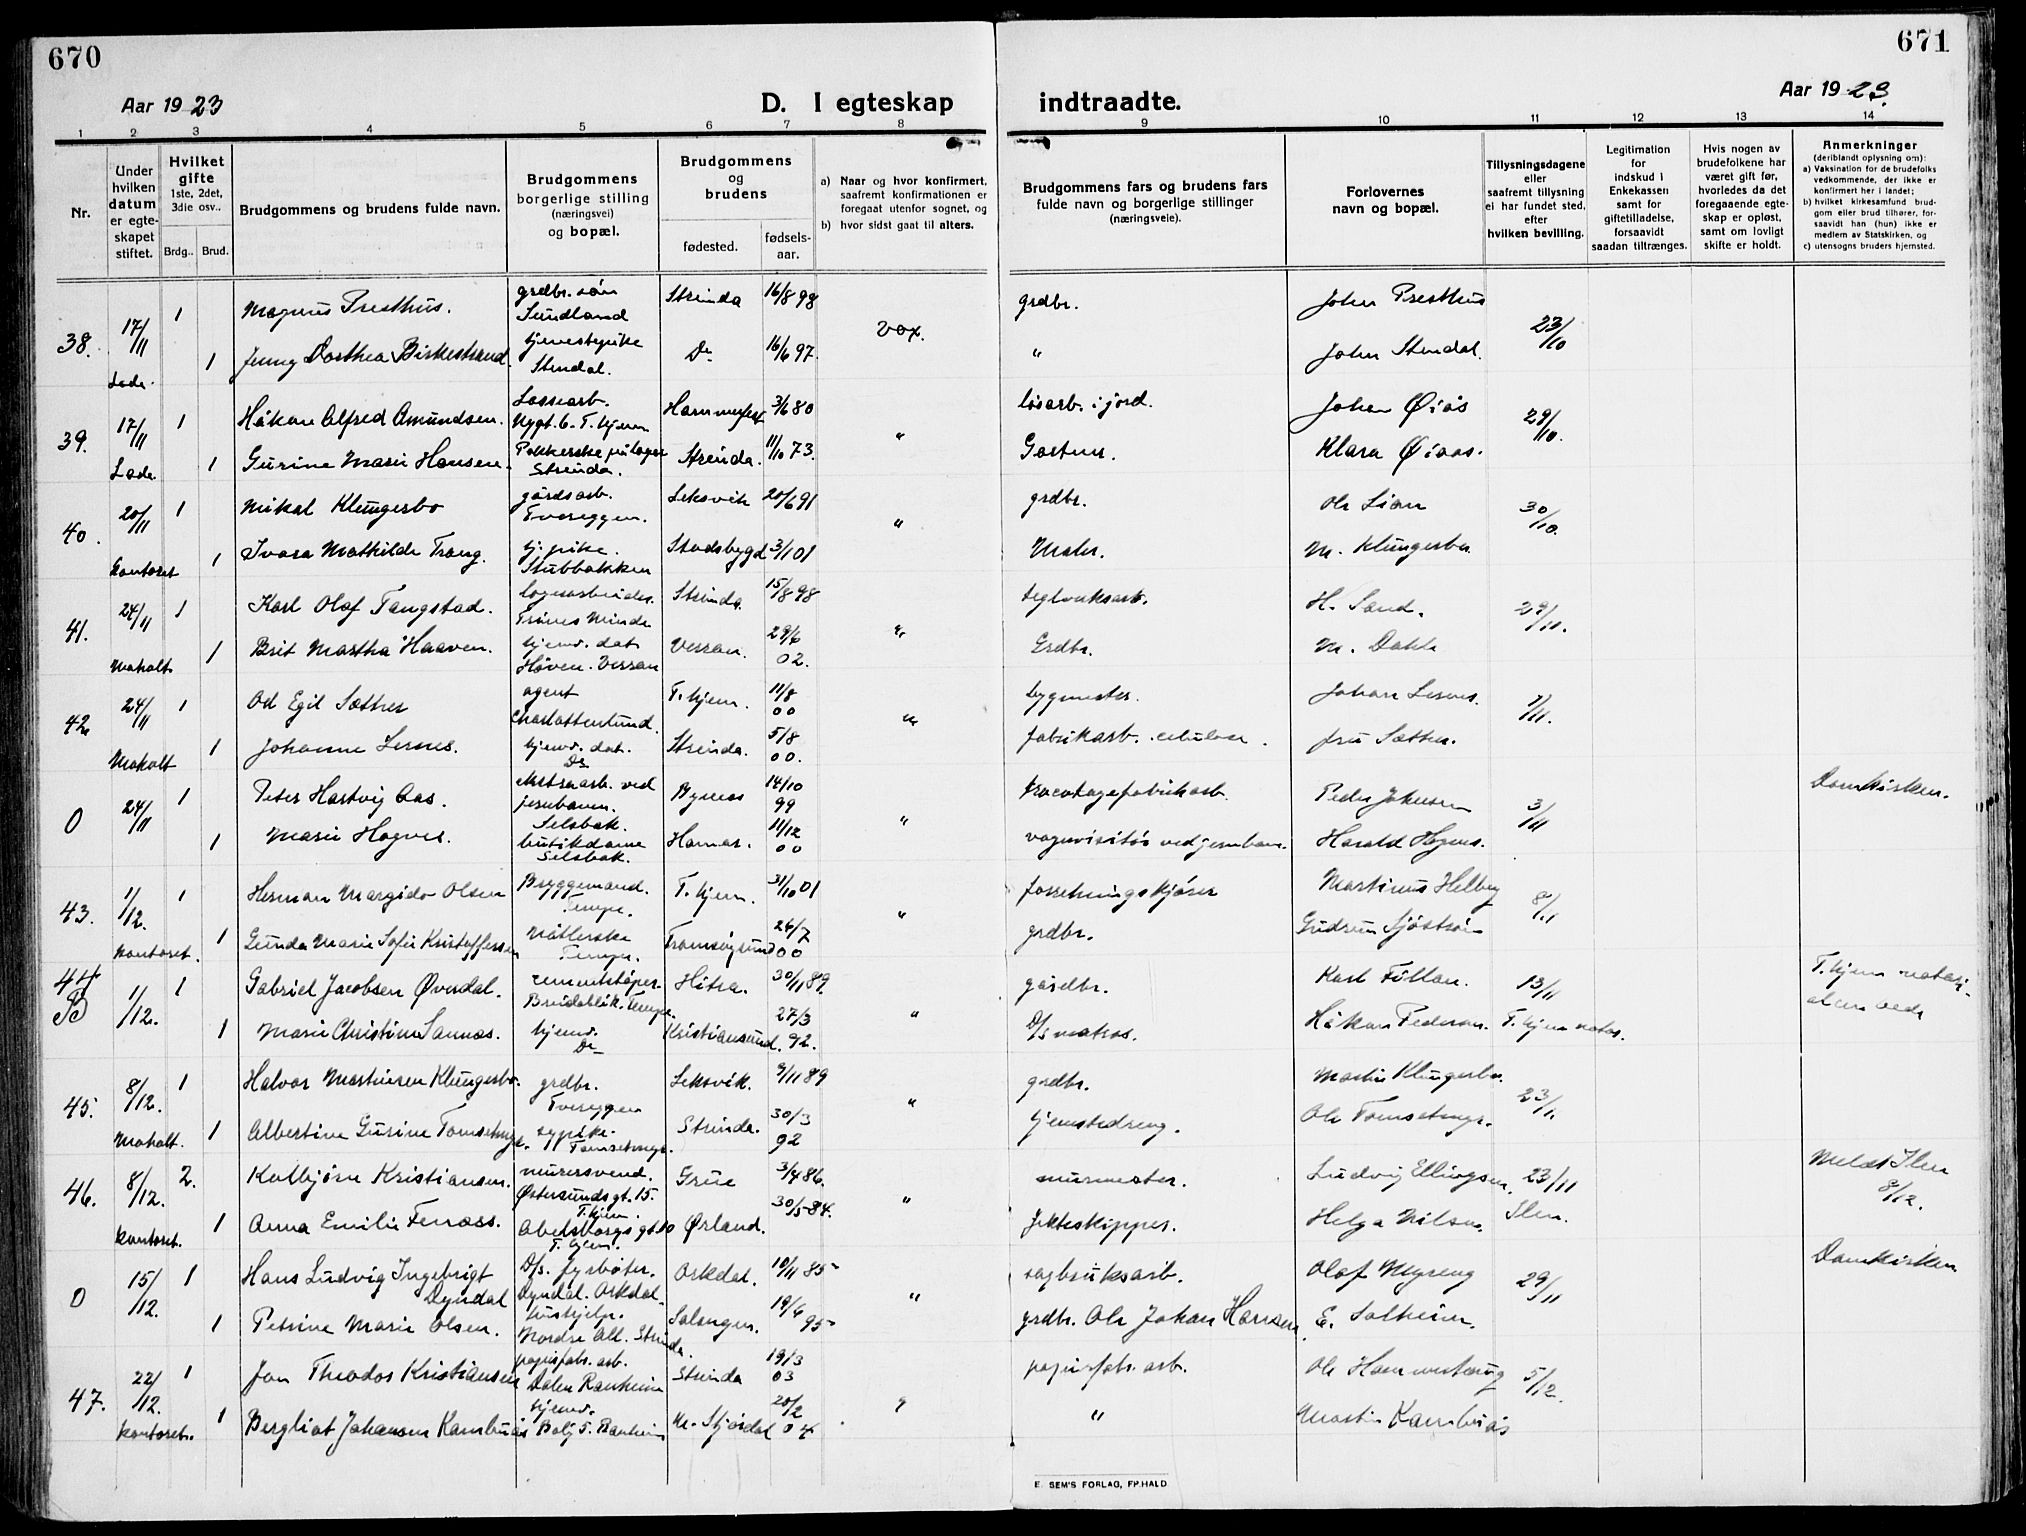 670
671
Aar 1923
D. I egteskap
indtraadte.
Aar 1923.
1 2 3 4 5 6 7 8 9 10 11 12 13 14
Nr.
Under hvilken datum er egteskapet stiftet.
Hvilket gifte 1ste, 2det, 3die osv..
Brdg..
Brud.
Brudgommens og brudens fulde navn.
Brudgommens borgerlige stilling (næringsvei) og bopæl.
Brudgommens og brudens
fødested.
fødsels-aar.
a) Naar og hvor konfirmert, saafremt konfirmationen er foregaat utenfor sognet, og
b) hvor sidst gaat til alters.
Brudgommens fars og brudens fars fulde navn og borgerlige stillinger (næringsveie).
Forlovernes navn og bopæl.
Tillysningsdagene eller saafremt tillysning ei har fundet sted, efter hvilken bevilling.
Legitimation for indskud i Enkekassen samt for giftetilladelse, forsaavidt saadan tiltrænges.
Hvis nogen av brudefolkene har været gift før, hvorledes da det foregaaende egteskap er opløst, samt om lovligt skifte er holdt.
Anmerkninger (deriblandt oplysning om):
a) Vaksination for de brudefolks vedkommende, der ikke er konfirmert her i landet;
b) hvilket kirkesamfund brudgom eller brud tilhører, forsaavidt han (hun) ikke er medlem av Statskirken, og
c) utensogns bruders hjemsted.
38. 17/11 Lade. 1 Magnus Presthus. grdbr. søn Sundland Strinda 16/8 98 vax. grdbr. John Presthus 23/10
1 Jenny Dorthea Birkestrand tjenestepike Stendal. Do 16/6 97. " John Stendal.
39. 17/11 Lade 1 Håkon Alfred Amundsen. Lossearb. Nygt. 6. T.hjem Hammerfest 3/6 80 " løsarb. i jord. Johan Øiås 29/10.
1 Gurine Marie Hansen. Strinda. Strinda. 11/10 73. Gartner. Klara Øiaas.
40. 20/11 kontoret 1 Mikal Klungerbo gårdsarb. Tvereggen. Leksvik 20/6 91 " grdbr. Ole Lian 30/10.
1 Ivara Mathilde Trang. tj. pike. Stubbakken Stadsbygd 3/1 01 Maler. M. Klungerbo
41. 24/11 Moholt 1 Karl Olaf Tangstad. Trines Minde Strinda 15/8 98 " teglverksarb. H. Sand. 29/10.
1 Brit Martha Haaven. hjemv. dat. Høven. Verran Verran. 29/6 02. Grdbr. M. Dahle
42. 24/11 Moholt 1 Od Egil Sæther agent Charlottenlund. T.hjem. 11/8 00 " bygmester. Johan Lernes. 7/11.
1 Johanne Lernes. hjemv. dat. Do Strinda. 5/8 00. fabrikarb. cellulose. fru Sæther.
0 24/11 1 Peter Hartvig Aas. ekstraarb. ved jernbanen. Selsbak. Byneset 14/10 99 " Peder Johnsen 3/11 Domkirken.
1 Marie Hognes. butikdame Selsbak. Hamar. 11/12 00 vognvisitør ved jernban. Harald Hognes.
43. 1/12. kontoret. 1 Herman Margido Olsen Bryggemand. Tempe. T.hjem. 31/10 01 " forretningskjører Martinus Helberg 8/11
1 Gunda Marie Sofie Kristoffersen Tempe. Tromsøysund 26/7 00 grdbr. Gudrun Sjøstrøm
44 B 1/12. 1 Gabriel Jacobsen Øverdal. cementstøper Breidablik. Tempe. Hitra. 30/11 89. " gårdbr. Karl Fillan. 13/11
1 Marie Christine Sannæs. hjemv. Do Kristiansund. 27/3 92. D/s matros. Håkon Pedersen. T.hjem
45. 8/12. Moholt. 1 Halvor Martinsen Klungerbo. grdbr. Tvereggen Leksvik. 9/11 89 " grdbr. Martin Klungerbo. 23/11
1 Albertine Gurine Tomsetmyr. sypike. Tomsetmyr. Strinda. 30/3 92 Ole Tomsetmyr.
46. 8/12. kontoret. 1 2. Kolbjørn Kristiansen. murersvend. Østersundsgt. 15. T.hjem. Grue 3/4 86. " murmester. Ludvig Ellingsen 23/11 Ilen. Meldt Ilen 8/12.
1 Anna Emilie Fenæss. Abelsborgs gt. 10 T.hjem. Ørland. 30/5-84. Jekteskipper. Helga Nilsen
0 15/12. 1 Hans Ludvig Ingebrigt Dyndal D/s. fyrbøter. Dyndal. Orkdal Orkdal. 10/11 85 " sagbruksarb. Olaf Myreng 29/11 Domkirken
1 Petrine Marie Olsen. hushjelp. Nordre All. Strinda. Salangen. 19/6 95 grdbr. Ole Johan Hansen E. Solheim.
47. 22/12. kontoret. 1 Jon Theodor Kristiansen papirfabr. arb. Dalen Ranheim Strinda 19/3 03 " papirfabr. arb. Ole Hammerhaug 5/12.
1 Bergliot Johansen Kambuås hjemv. Bolj 5. Ranheim N. Stjørdal 20/2 04 " Martin Kambuås
E. SEM'S FORLAG, FR.HALD